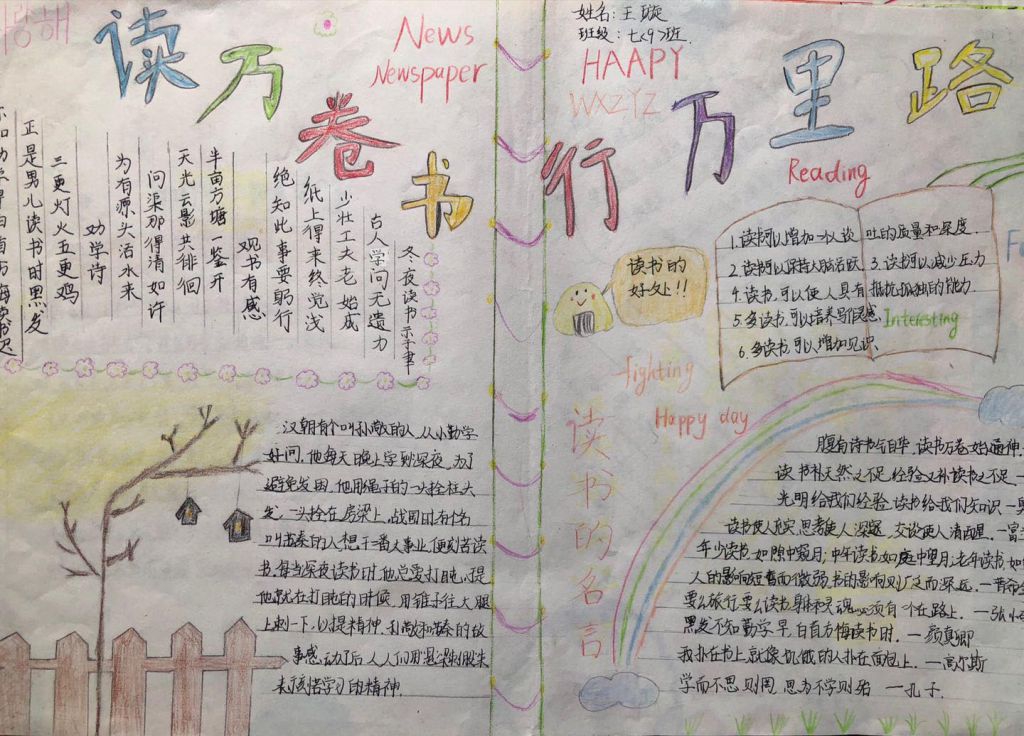 读万卷书
行万里路
News
Newspaper
姓名:王璇
班级:七<9>班
HAAPY
WXZYZ
Reading
冬夜读书示子聿
古人学问无遗力
少壮工夫老始成
纸上得来终觉浅
绝知此事要躬行
观书有感
半亩方塘一鉴开
天光云影共徘徊
问渠那得清如许
为有源头活水来
劝学诗
三更灯火五更鸡
正是男儿读书时黑发
读书的
好处!!
1.读书可以增加一个人谈吐的质量和深度.
2.读书可以保持大脑活跃 3.读书可以减少压力
4.读书可以使人具有抵抗孤独的能力
5.多读书.可以培养写作灵感.
Interesting
6.多读书.可以增加见识.
fighting
Happy day
读书的名言
汉朝有个叫孙敬的人,从小勤学
好问,他每天晚上学到深夜,为了
避免发困,他用绳子的一头拴住头
发,一头拴在房梁上,战国时有个名
叫苏秦的人想干一番大事业,便刻苦读
书.每当深夜读书时,他总要打盹,于是
他就在打盹的时候,用锥子往大腿
上刺一下,以提精神,孙敬和苏秦的故
事感动了后人,人们用悬梁刺股来
来
学习的精神.
腹有诗书气自华 读书万卷始通神.
读书补天然之不足,经验又补读书之不足
光明给我们经验.读书给我们知识
读书使人充实,思考使人深邃,交谈使人清醒.
年少读书,如隙中窥月;中年读书,如庭中望月;老年读书,如
人的影响短暂而微弱,书的影响则广泛而深远.
要么旅行,要么读书,身体和灵魂,必须有一个在路上.
黑发不知勤学早,白首方悔读书时. —颜真卿
我扑在书上,就像饥饿的人扑在面包上. —高尔斯
学而不思则罔,思而不学则殆 —孔子.